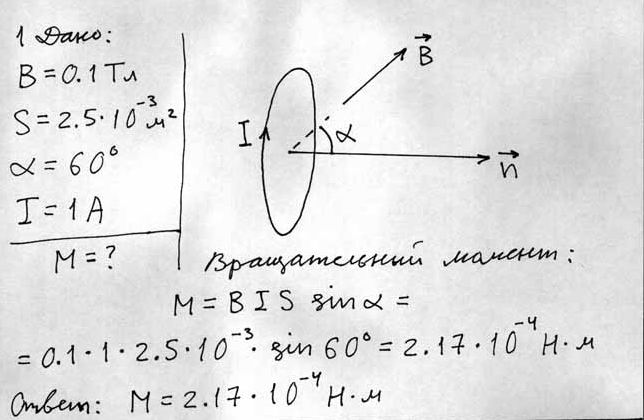 1 Дано:
B = 0.1 Тл
S = 2.5 · 10⁻³ м²
α = 60°
I = 1 A
M = ?
I
α
B⃗
n⃗
Вращательный момент:
M = B I S sin α =
= 0.1 · 1 · 2.5 · 10⁻³ · sin 60° = 2.17 · 10⁻⁴ Н · м
Ответ: M = 2.17 · 10⁻⁴ Н · м